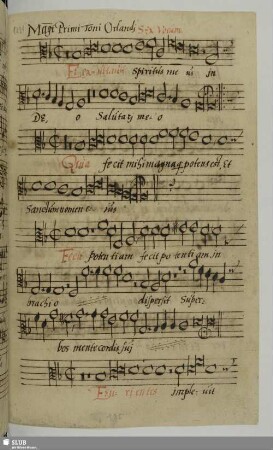 Magt Primi Toni Orlandi Sex Vocum
Et exultauit Spiritus me us in
De o Salutarj me o
Quia fecit mihi magna q potens est, Et
Sanctum nomen e ius
Fecit poten ti am fecit po ten ti am in
brachi o dispersit Super
bos mente cordis suj
Esu ri entes imple uit
SLUB